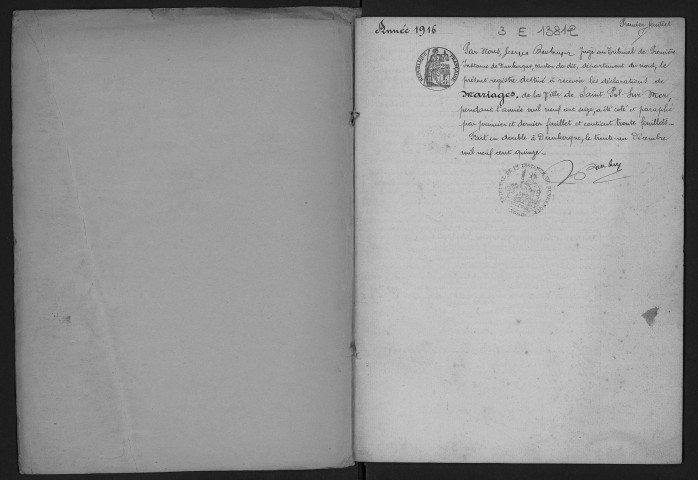 Premier feuillet
Année 1916
3 E 13812
Par Nous, Georges Boulanger Juge au tribunal de Première
Instance de Dunkerque, canton du dit, département du nord, le
présent registre destiné à recevoir les déclarations de
Mariages, de la Ville de Saint-Pol-Sur-Mer,
pendant l'année mil neuf cent seize, a été coté et paraphé
par premier et dernier feuillet et contient trente feuillets.
Fait en double à Dunkerque, le trente un Décembre
mil neuf cent quinze.